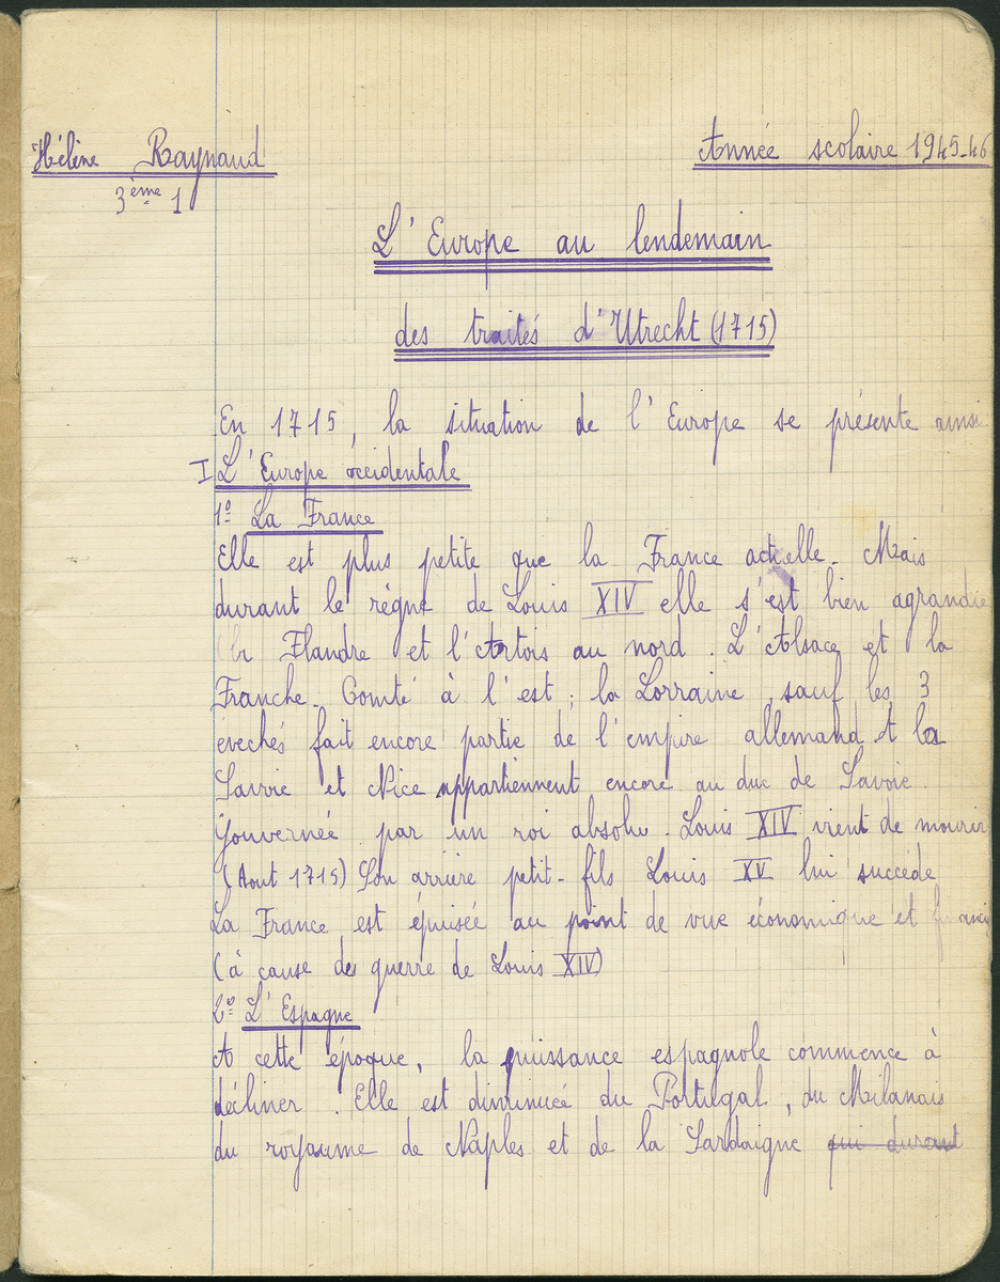 Hélène Raynaud
Année scolaire 1945-46
3ème 1
L'Europe au lendemain
des traités d'Utrecht (1715)
En 1715, la situation de l'Europe se présente ainsi
I L'Europe occidentale
1º La France
Elle est plus petite que la France actuelle. Mais
durant le règne de Louis XIV elle s'est bien agrandie
Flandre et l'Artois au nord. L'Alsace et la
Franche-Comté à l'est ; la Lorraine, sauf les 3
évechés fait encore partie de l'empire allemand et la
Savoie et Nice appartiennent encore au duc de Savoie.
Gouvernée par un roi absolu. Louis XIV vient de mourir
(Aout 1715) Son arrière petit-fils Louis XV lui succède
La France est épuisée au point de vue économique et financi
(à cause des guerre de Louis XIV)
2º L'Espagne
A cette époque, la puissance espagnole commence à
décliner. Elle est diminuée du Portugal, du Milanais
du royaume de Naples et de la Sardaigne qui durant